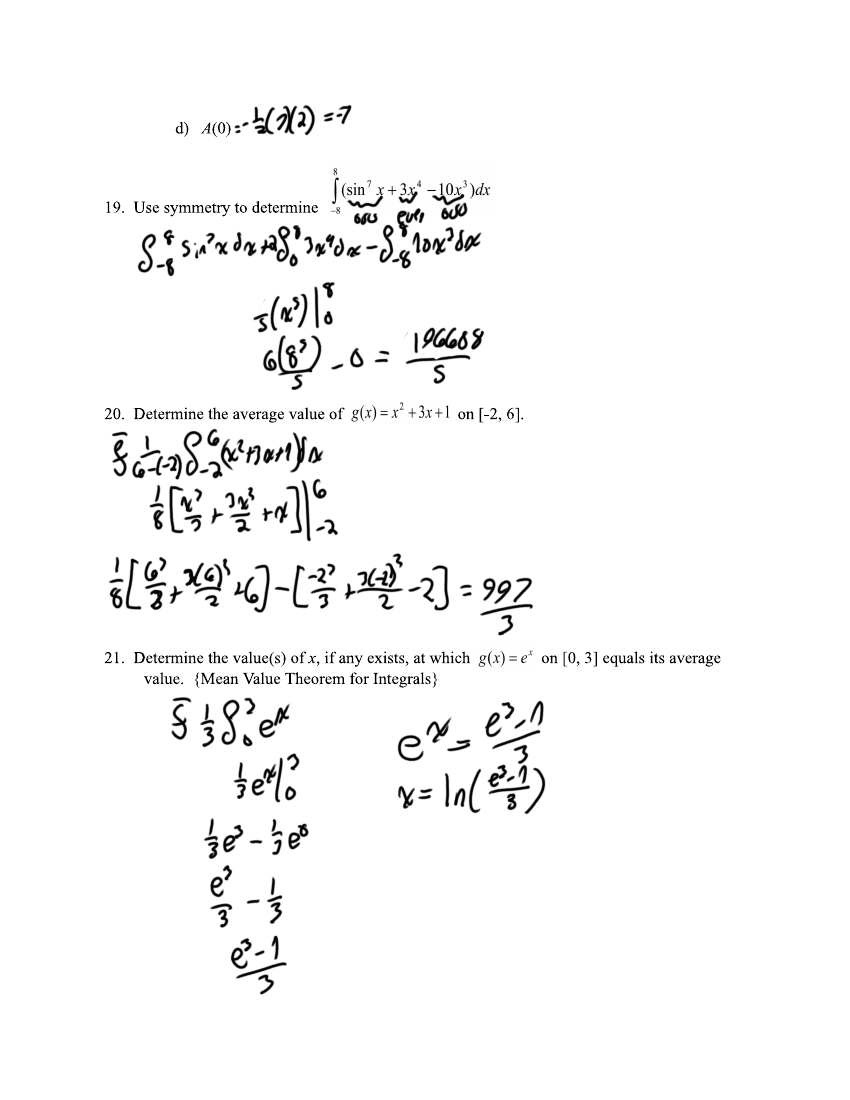 d) A(0)=-½(7)(2) =-7
∫₋₈⁸(sin⁷ x + 3x⁴ − 10x³)dx
19. Use symmetry to determine
odd even odd
∫₋₈⁸ sin⁷x dx + 2∫₀⁸ 3x⁴dx − ∫₋₈⁸ 10x³dx
/5(x⁵)|₀⁸
6(8⁵)/5 − 0 = 196608/5
20. Determine the average value of g(x) = x² + 3x + 1 on [-2, 6].
1/(6-(-2)) ∫₋₂⁶(x²+3x+1)dx
1/8[x³/3 + 3x²/2 + x]|₋₂⁶
1/8[6³/3 + 3(6)²/2 + 6] − [-2³/3 + 3(-2)²/2 − 2] = 997/3
21. Determine the value(s) of x, if any exists, at which g(x) = eˣ on [0, 3] equals its average
value. {Mean Value Theorem for Integrals}
1/3 ∫₀³ eˣ
1/3 eˣ|₀³
1/3 e³ − 1/3 e⁰
e³/3 − 1/3
(e³−1)/3
eˣ = (e³−1)/3
x = ln((e³−1)/3)